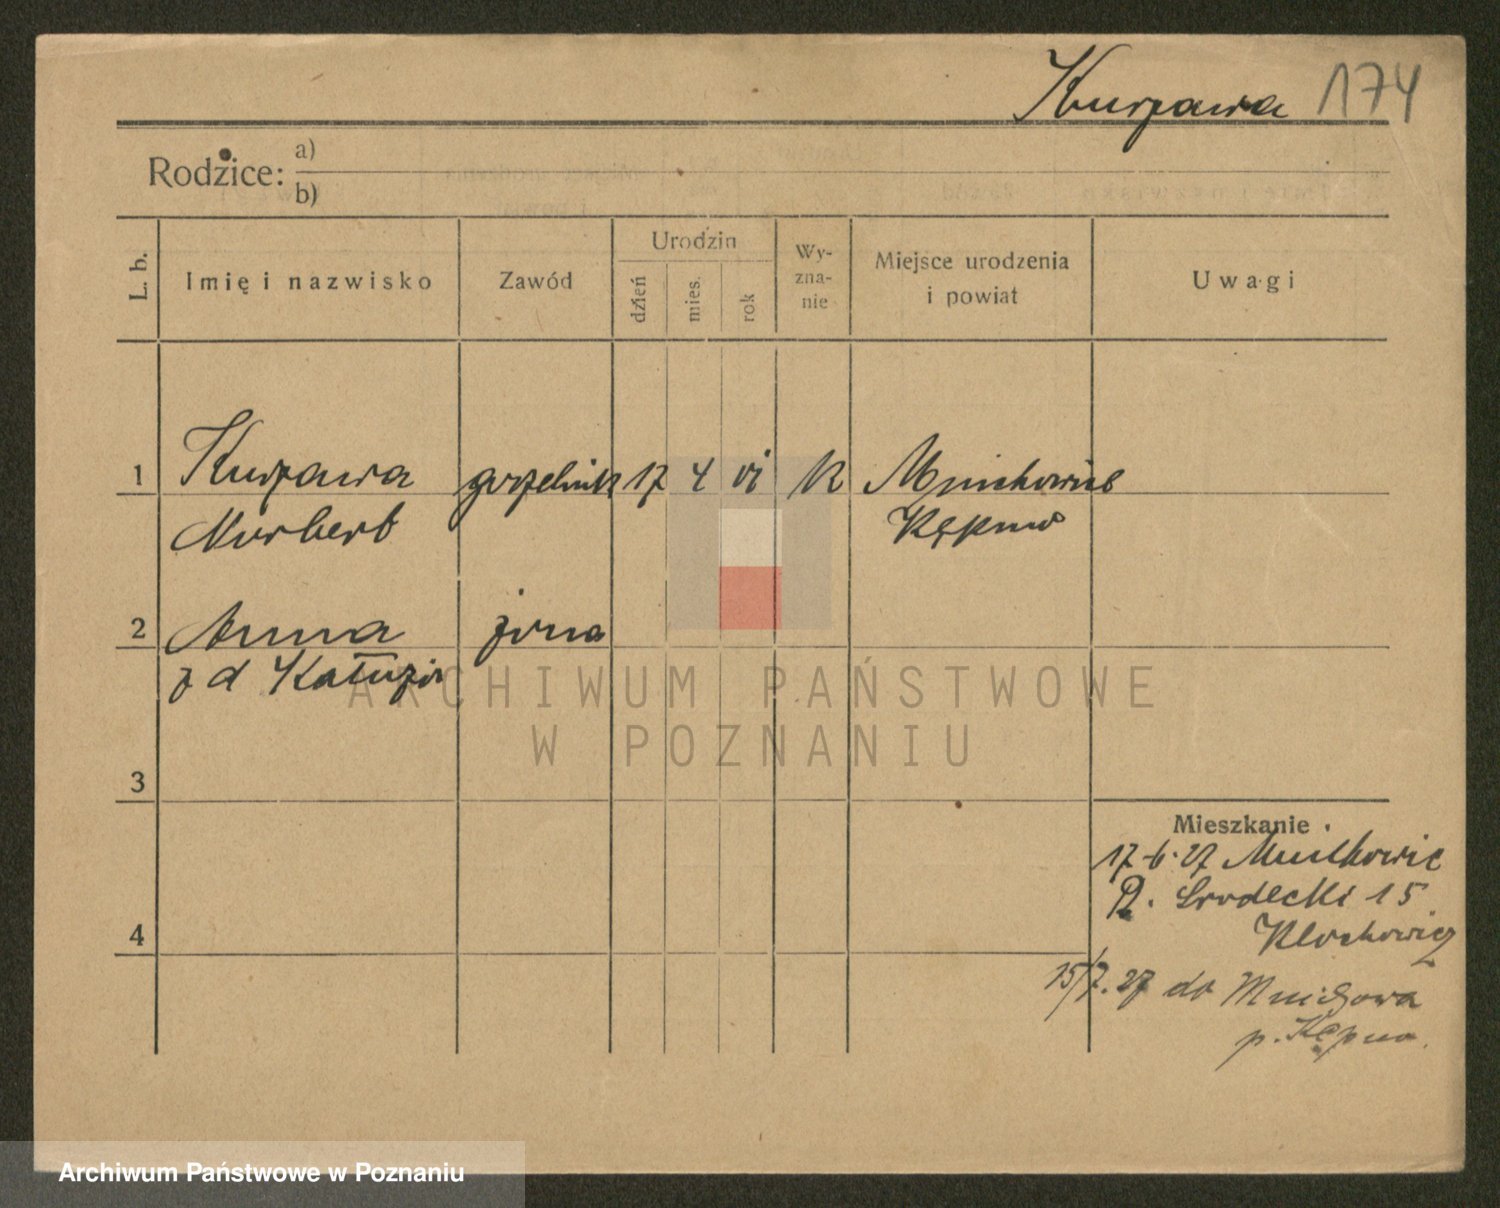 Kurzawa 174
Rodzice: a)
b)
L. b. Imię i nazwisko Zawód Urodzin dzień mies. rok Wy-zna-nie Miejsce urodzenia i powiat Uwagi
1 Kurzawa gorzelnik 17 4 01 K
Norbert Kępno
2 Anna żona
z d
3
Mieszkanie
17-6-27
Pl. Srodecki 15
4
15/7.27 do Mnichowa
p. Kępno.
ARCHIWUM PAŃSTWOWE
W POZNANIU
Archiwum Państwowe w Poznaniu